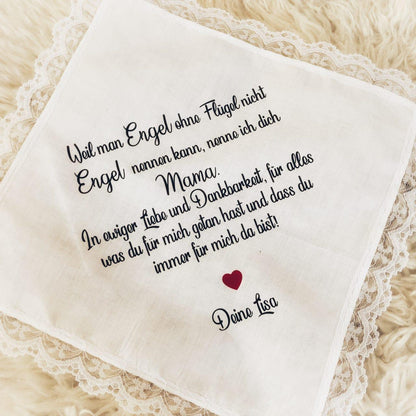 Weil man Engel ohne Flügel nicht
Engel nennen kann, nenne ich dich
Mama.
In ewiger Liebe und Dankbarkeit, für alles
was du für mich getan hast und dass du
immer für mich da bist!
Deine Lisa